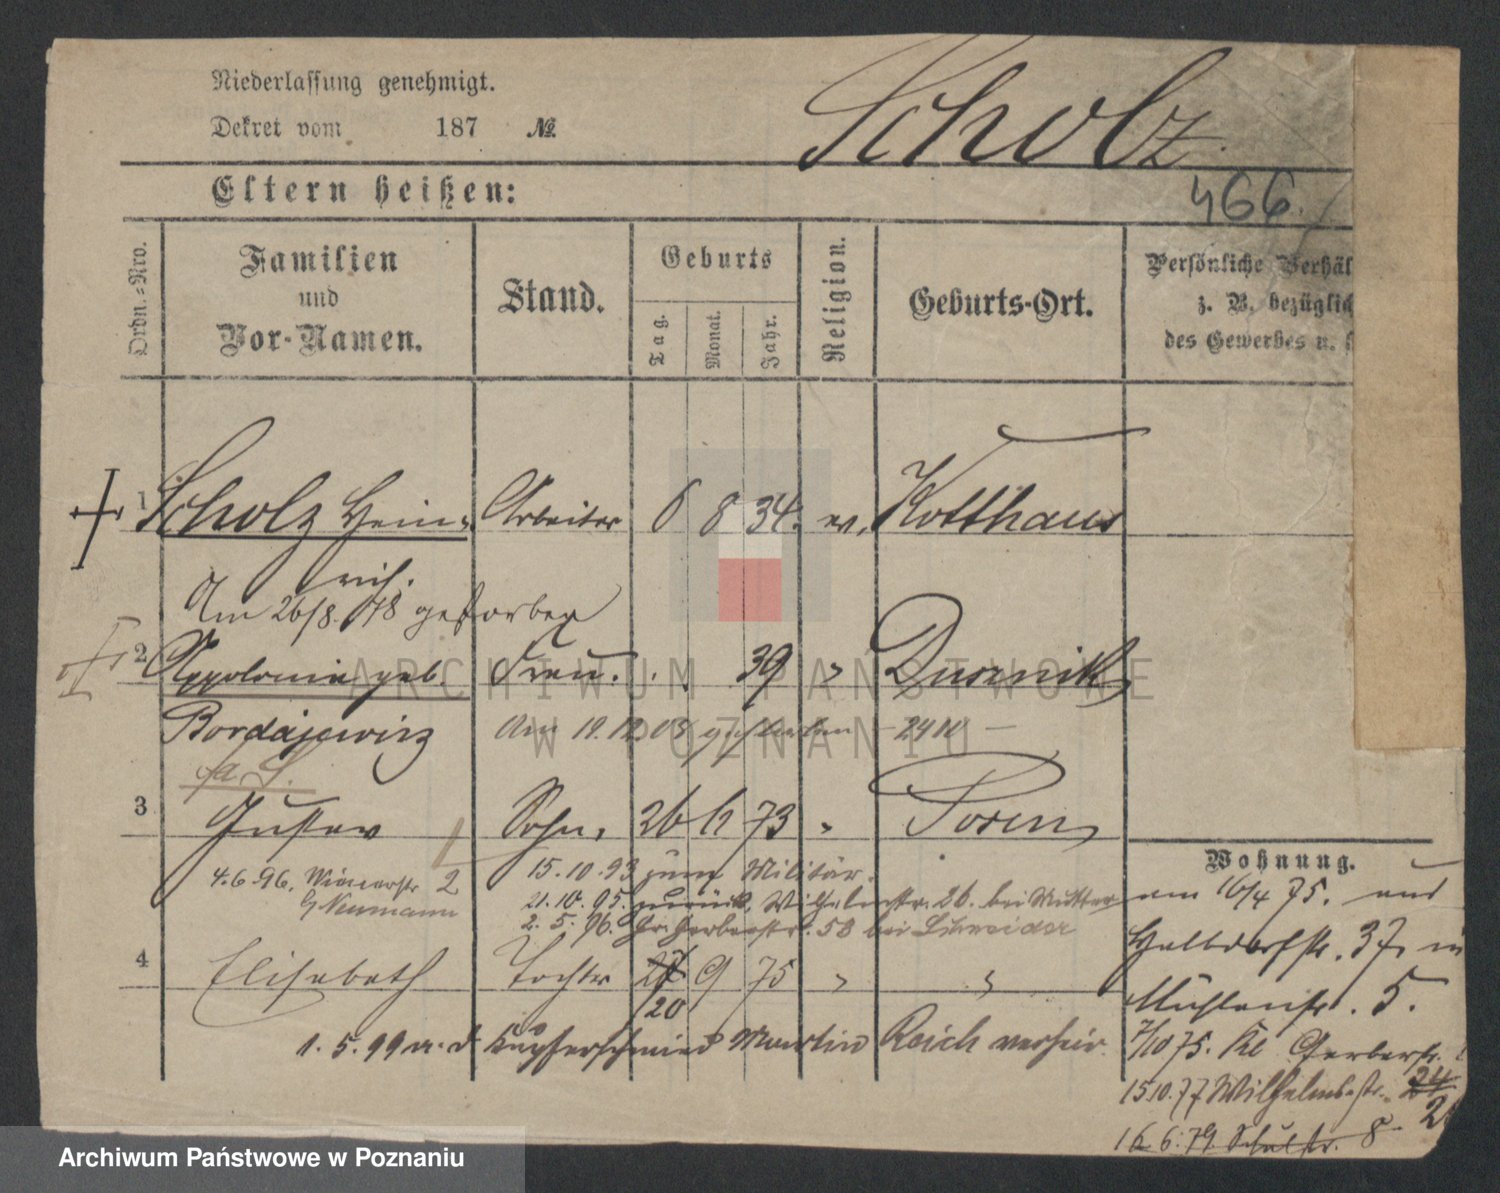 Niederlassung genehmigt.
Dekret vom 187 №
Scholz.
Eltern heißen:
466.
Ordn.-Nro.
Familien und Vor-Namen.
Stand.
Geburts
Tag. Monat. Jahr.
Religion.
Geburts-Ort.
Persönliche Verhäl
z. B. bezüglic
des Gewerbes u.
1 Scholz Hein- Arbeiter 6 8 34. ev. Kotthaus
rich.
Am 26/8. 78 gestorben
2 Appolonia geb. Frau. 39 " Dusznik
Bordajewicz Am 19.12.08 gestorben
3 Gustav Sohn, 26 73 " Posen
4.6.96, 2 15.10.93 zum Militär.
Neumann 21.10.95. zurück, Wilhelmstr. 26. bei Mutter
2. 5. 96. Gr. Gerberstr. 58 bei Schneider
4 Elisabeth Tochter 27 9 75 " "
20
1. 5. 99 m. d. Kupferschmied Martin Reich verheir.
Wohnung.
am 16/4 75. aus
Halbdorfstr. 37, in
Mühlenstr. 5.
7/10 75. Kl Gerberstr.
15 10. 77 Wilhelmsstr. 24
16 6. 79. Schulstr. 8
ARCHIWUM PAŃSTWOWE
W POZNANIU
Archiwum Państwowe w Poznaniu